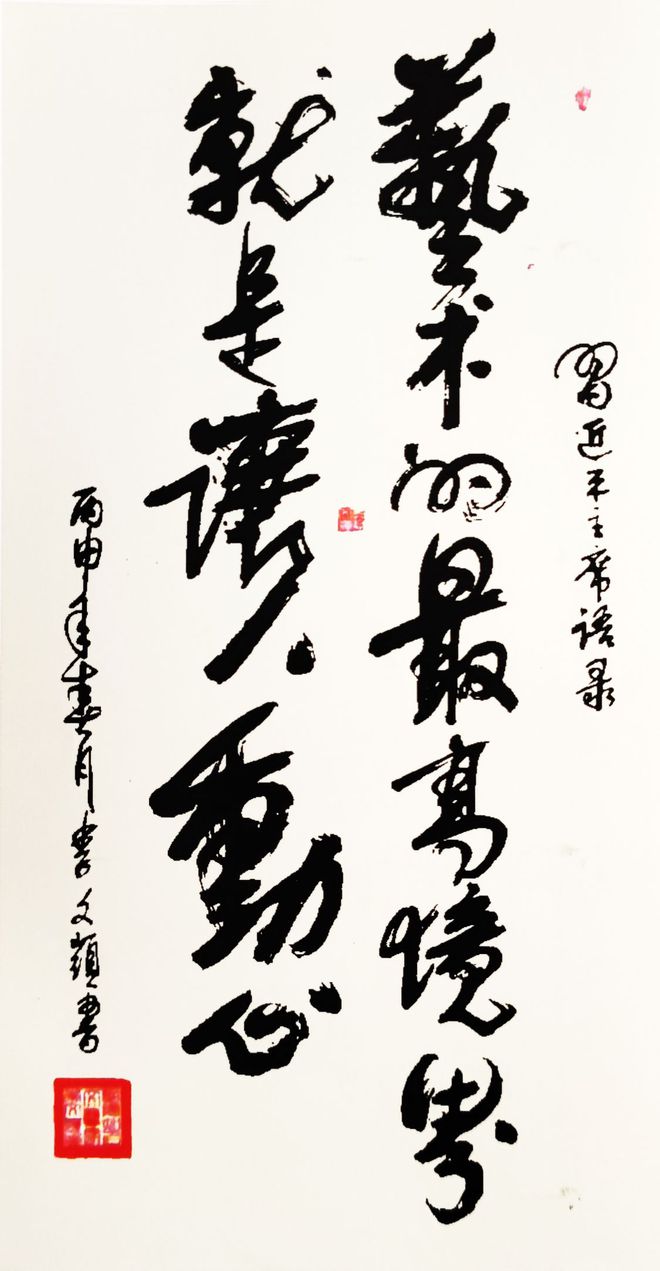 習近平主席語录
藝术的最高境界
就是讓人動心
丙申年春月文書